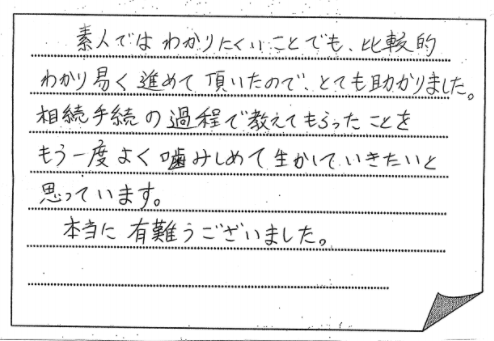 素人ではわかりにくいことでも、比較的
わかり易く進めて頂いたので、とても助かりました。
相続手続の過程で教えてもらったことを
もう一度よく噛みしめて生かしていきたいと
思っています。
本当に有難うございました。